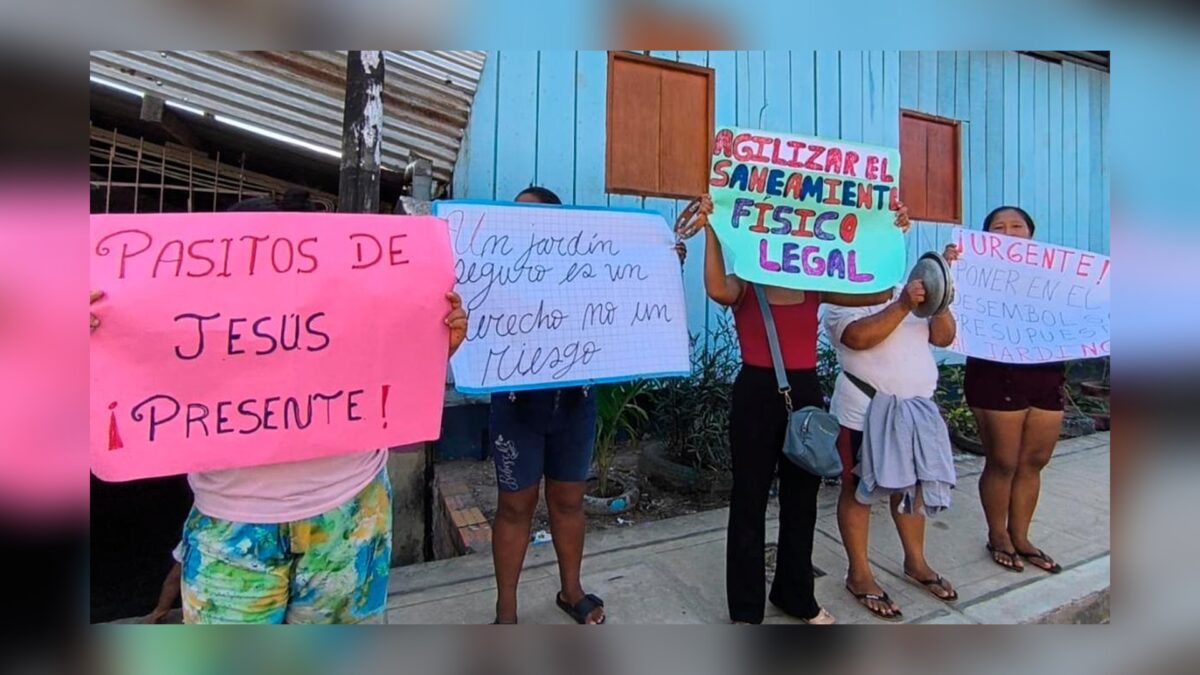 PASITOS DE
JESÚS
¡PRESENTE!
Un jardín
seguro es un
derecho no un
riesgo
AGILIZAR EL
SANEAMIENTO
FÍSICO
LEGAL
¡URGENTE!
PONER EN EL
DESEMBOLS
PRESUPUES
MI JARDIN